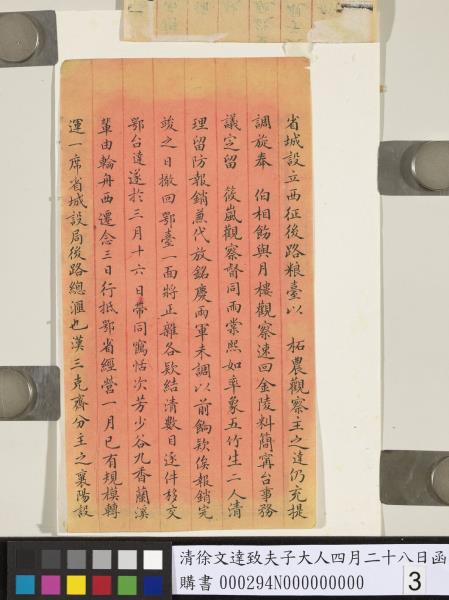 省城設立西征後路粮臺以　柘農觀察主之達仍充提
調旋奉　伯相飭與月樓觀察速回金陵料簡甯台事務
議定留　筱嵐觀察督同雨棠熙如率象五竹生二人清
理留防報銷兼代放銘慶兩軍未調以前餉欵俟報銷完
竣之日撤回鄂臺一面將正雜各欵結清數目逐件移交
鄂台達遂於三月十六日帶同鶱恬次芳少谷九香蘭溪
輩由輪舟西還念三日行抵鄂省經營一月已有規模轉
運一席省城設局後路總滙也漢三克齊分主之襄陽設
清徐文達致夫子大人四月二十八日函
購書 000294N000000000
3